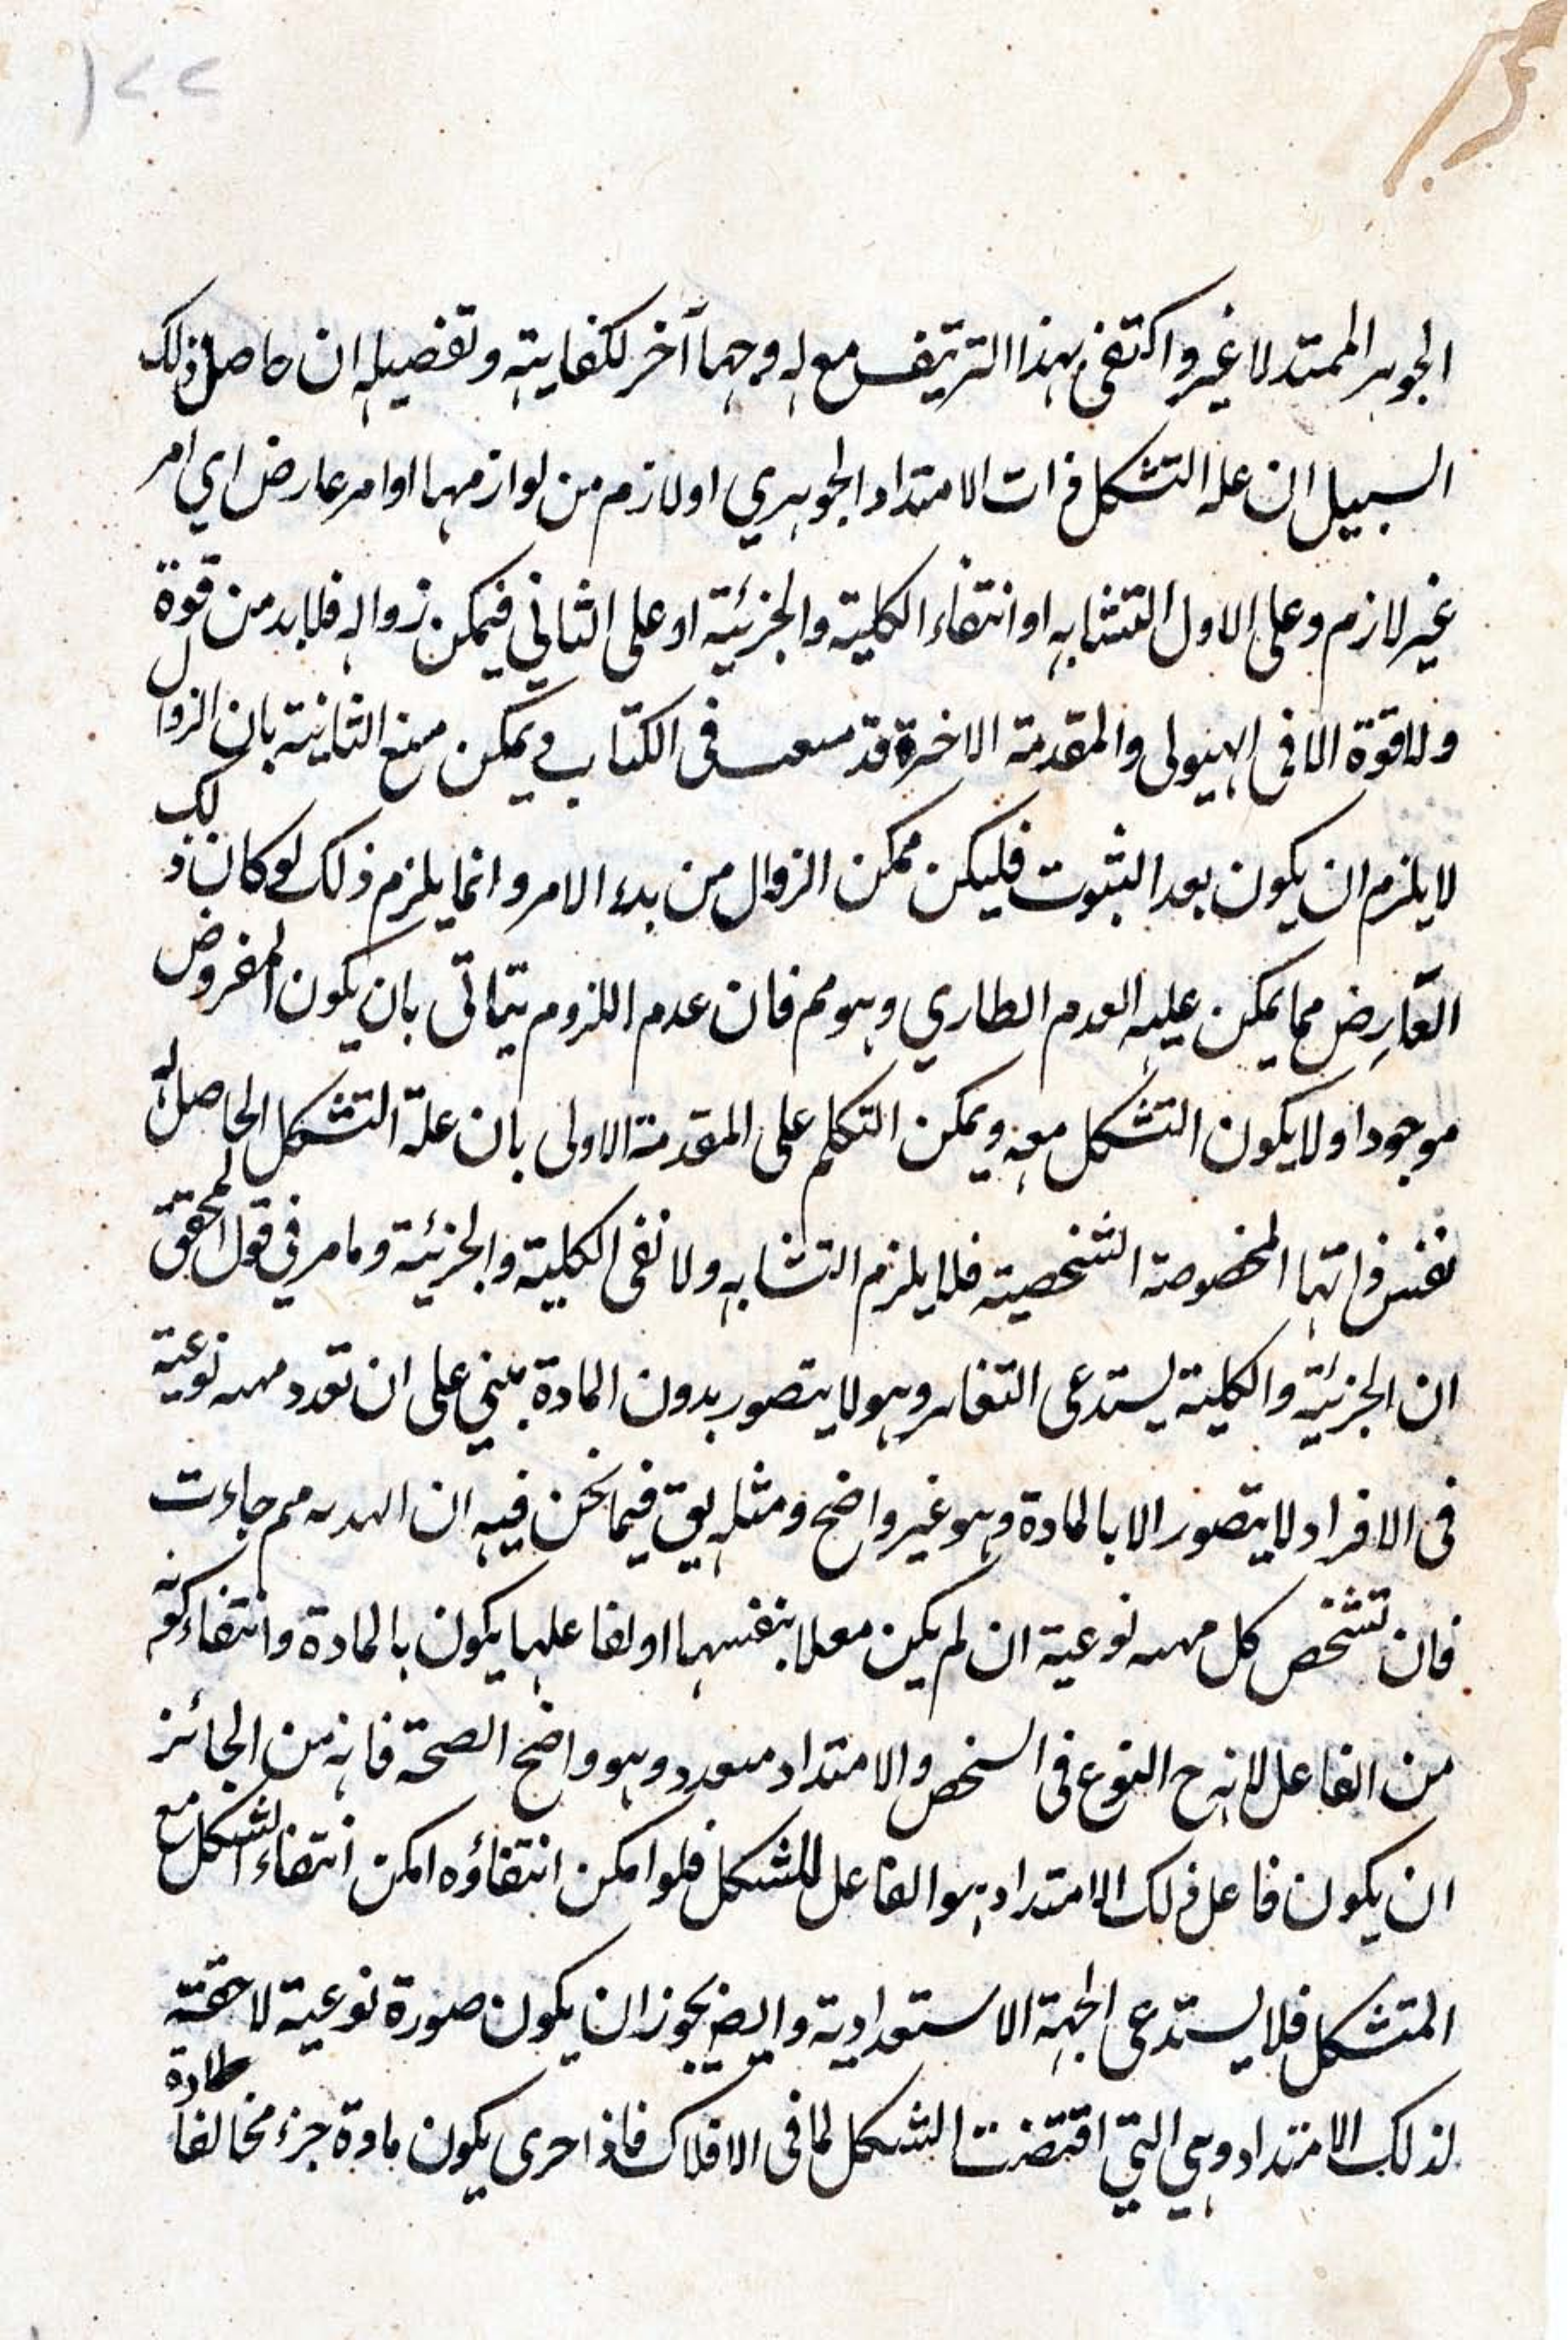 ١٢٢
الجوهر الممتد لا غير واكتفى بهذا التزييف مع ان له وجها آخر لكفايته وتفصيله ان حاصل ذلك
السبيل ان عله التشكل ذات الامتداد الجوهري او لازم من لوازمها او امر عارض اي امر
غير لازم وعلى الاول التشابه او انتفاء الكلية والجزئية او على الثاني فيمكن زواله فلابد من قوة
ولا قوة الا في الهيولى والمقدمة الاخرة قد في الكتاب ويمكن منع الثانية بان الزوال
لا يلزم ان يكون بعد الثبوت فليكن ممكن الزوال من بدء الامر وانما يلزم ذلك لو كان ذلك
العارض مما يمكن عليه العدم الطاري وهو مم فان عدم اللزوم يتاتى بان يكون المفروض
موجودا ولا يكون التشكل معه ويمكن التكلم على المقدمة الاولى بان علة التشكل الحاصل له
نفس ذاتها المخصوصة الشخصية فلا يلزم التشابه ولا نفى الكلية والجزئية وما مر في قول المحقق
ان الجزئية والكلية يستدعى التغاير وهو لا يتصور بدون المادة بيني على ان تعدد مهيه نوعية
فى الافراد لا يتصور الا بالمادة وهو غير واضح ومثله يق فيما نحن فيه ان مم جاءت
فان تشخص كل مهيه نوعية ان لم يكن معللا بنفسها او لفاعلها يكون بالمادة وانتفاء كونه
من الفاعل لانه ح النوع في الشخص والامتداد متعدد وهو واضح الصحة فانه من الجائز
ان يكون فاعل ذلك الامتداد هو الفاعل للشكل فلو امكن انتفاؤه امكن انتفاء الشكل مع
المتشكل فلا يستدعى الجهة الاستعدادية وايض يجوز ان يكون صورة نوعية لاحقة
لذلك الامتداد وهي التي اقتضت الشكل لما في الافلاك فاذ احرى يكون مادة جزء مخالفا لمادة